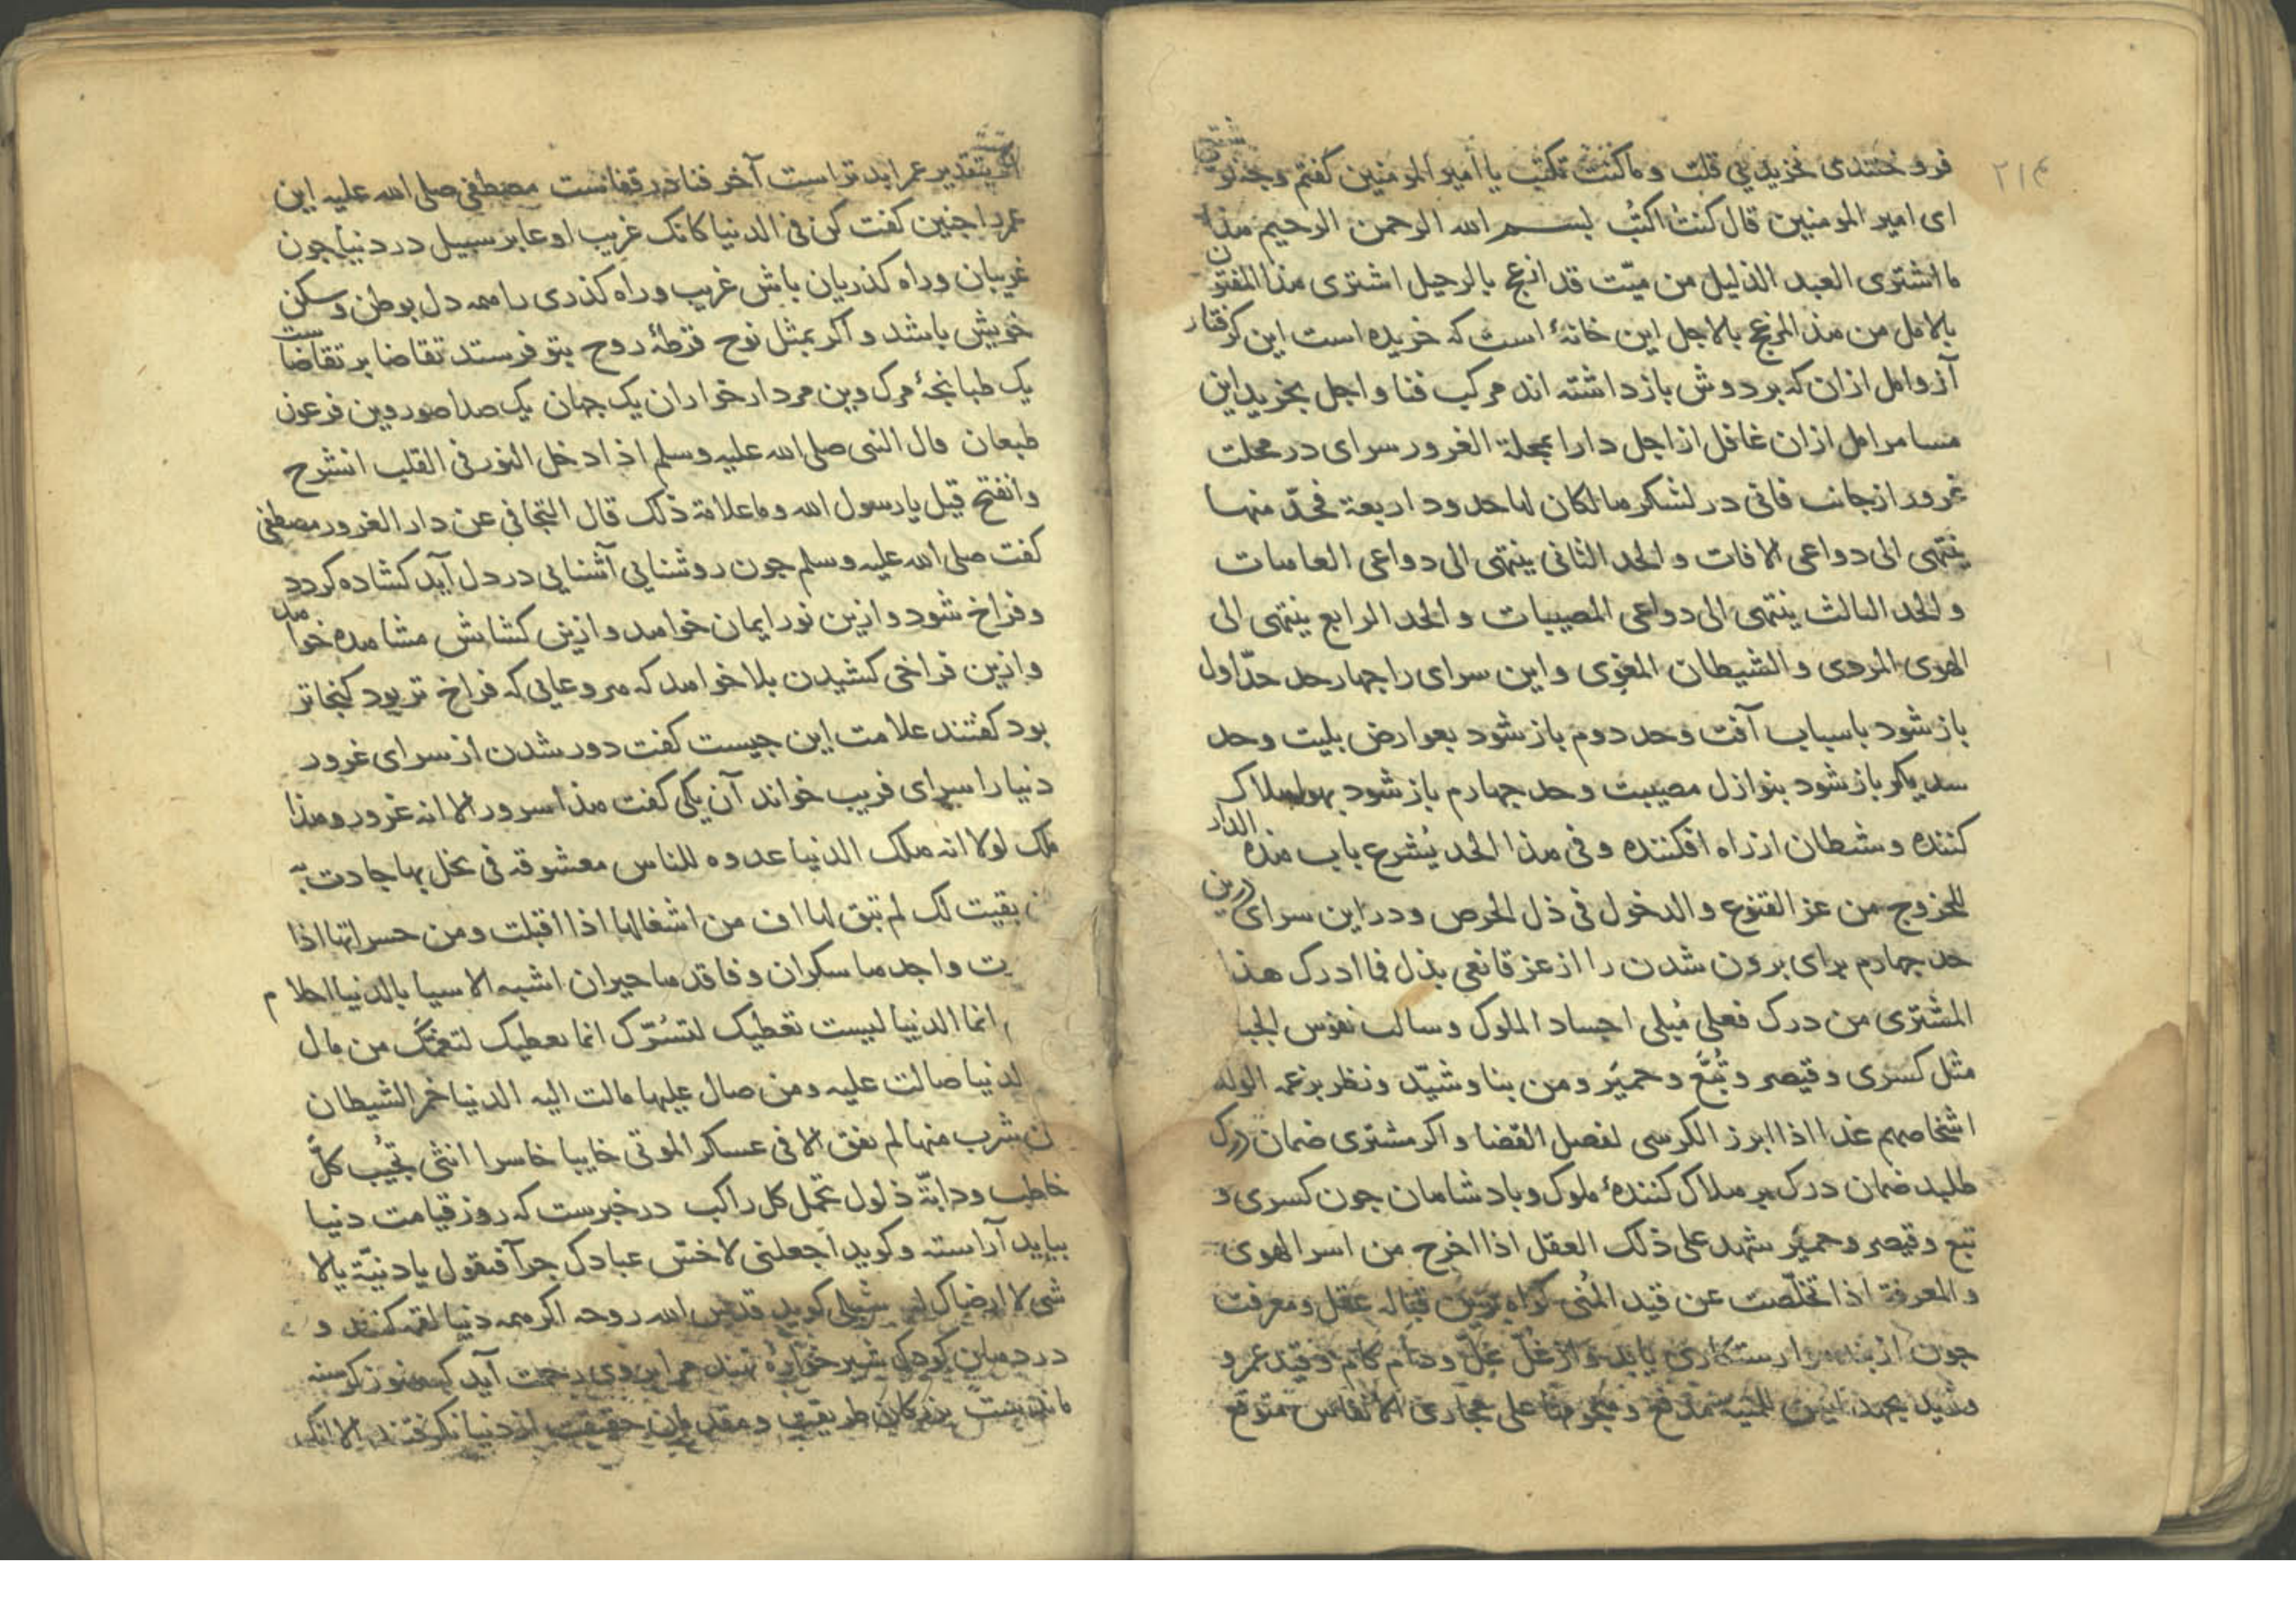 ۲۱۴
فروختندی نخریدیی قلت و ما کنت تکتب یا امیر المومنین کفتم وجه
ای امیر المومنین قال کنت اکتب بسم الله الرحمن الرحیم هذا
ما اشتری العبد الذلیل من میّت قد انزعج بالرحیل اشتری هذا المفتون
بالامل من هذا المزعج بالاجل این خانهٔ است که خریده است این کرفتار
آز وامل ازان که بر دوش باز داشته اند مرکب فنا و اجل بخرید این
مسامر امل ازان غافل از اجل دارا بمحلة الغرور سرای در محلت
غرور از جانب فانی در لشکر هالکان لها حدود اربعة فحدّ منها
ینتهی الی دواعی الافات و الحد الثانی ینتهی الی دواعی العاهات
و الحد الثالث ینتهی الی دواعی المصیبات و الحد الرابع ینتهی الی
الهوی المردی و الشیطان المغوی و این سرای را چهار حد حدّ اول
باز شود باسباب آفت و حد دوم باز شود بعوارض بلیت و حد
سدیکر باز شود بنوازل مصیبت و حد چهارم باز شود بهوا هلاک
کننده و شطان از راه افکننده و فی هذا الحد یُشرع باب هذه الدار
الخروج من عز القنوع و الدخول فی ذل الحرص و در این سرای درین
حد چهارم برای برون شدن را از عز قانعی بذل فما ادرک هذا
المشتری من درک فعلی مُبلی اجساد الملوک و سالب نفوس الجبا
مثل کسری و قیصر و تُبَّع و حمیَر و من بنا و شیّد و نظر بزعمه الولد
اشخاصهم غدا اذا ابرز الکرسی لفصل القضا و اکر مشتری ضمان درک
طلبد ضمان درک بر هلاک کنندهٔ ملوک و بادشاهان جون کسری و
تبع و قیصر و حمیَر شهد علی ذلک العقل اذا اخرج من اسر الهوی
و المعرفة اذا تخلّصت عن قید المُنی کواه برین قباله عقل و معرفت
جون از بند هوا رستکاری یابد و از غلّ غلّ و دام کام و قید عمرو
علی مجاری الانفاس متوقع
اکر بتقدیر عمر ابد تراست آخر فنا در قفاست مصطفی صلی الله علیه این
عمر را جنین کفت کن فی الدنیا کانک غریب او عابر سبیل در دنیا جون
غریبان و راه کذریان باش غریب و راه کذری را همه دل بوطن و سکن
خویش باشد و اکر بمثل نوح قرطهٔ روح بتو فرستد تقاضا بر تقاضاست
یک طبانجهٔ مرک و بین مردار خواران یک جهان یک صدا صور و بین فرعون
طبعان قال النبی صلی الله علیه وسلم اذا دخل النور فی القلب انشرح
وانفتح قیل یا رسول الله و ما علامة ذلک قال التجافی عن دار الغرور مصطفی
کفت صلی الله علیه وسلم جون روشنایی آشنایی در دل آید کشاده کردد
و فراخ شود و ازین نور ایمان خواهد و ازین کشایش مشاهده خواهد
و ازین فراخی کشیدن بلا خواهد که هر وعایی که فراخ تر بود کنجاتر
بود کفتند علامت این جیست کفت دور شدن از سرای غرور
دنیا را سرای فریب خواند آن یکی کفت هذا سرور الا انه غرور و هذا
ملک لولا انه هلک الدنیا عدوه للناس معشوقه فی بخل بها جادت به
بقیت لک لم تبق لها اف من اشغالها اذا اقبلت و من حسراتها اذا
واجدها سکران و فاقدها حیران اشبه الاسیا بالدنیا احلام
انما الدنیا لیست تعطیک لتسُرّک انما تعطیک لتغمّک من مال
لدنیا صالت علیه و من صال علیها مالت الیه الدنیا خمر الشیطان
شرب منها لم یفق الا فی عسکر الموتی خایبا خاسرا انثی تجُیب کلَّ
خاطب و دابّة ذلول تحمل کل راکب در خبرست که روز قیامت دنیا
بیاید آراسته و کوید اجعلنی لاخسّ عبادک جزآ فیقول یا دنیّة یا لا
شی لا ارضاک له شبلی کوید قدس الله روحه اکر همه دنیا لقمه کنند و
در دهان کودک شیر خوارهٔ نهند مرا بروی رحمت آید که هنوز کرسنه
مانده است بزرکان طریقت و مقدمان حقیقت از دنیا نکرفتند الا انک